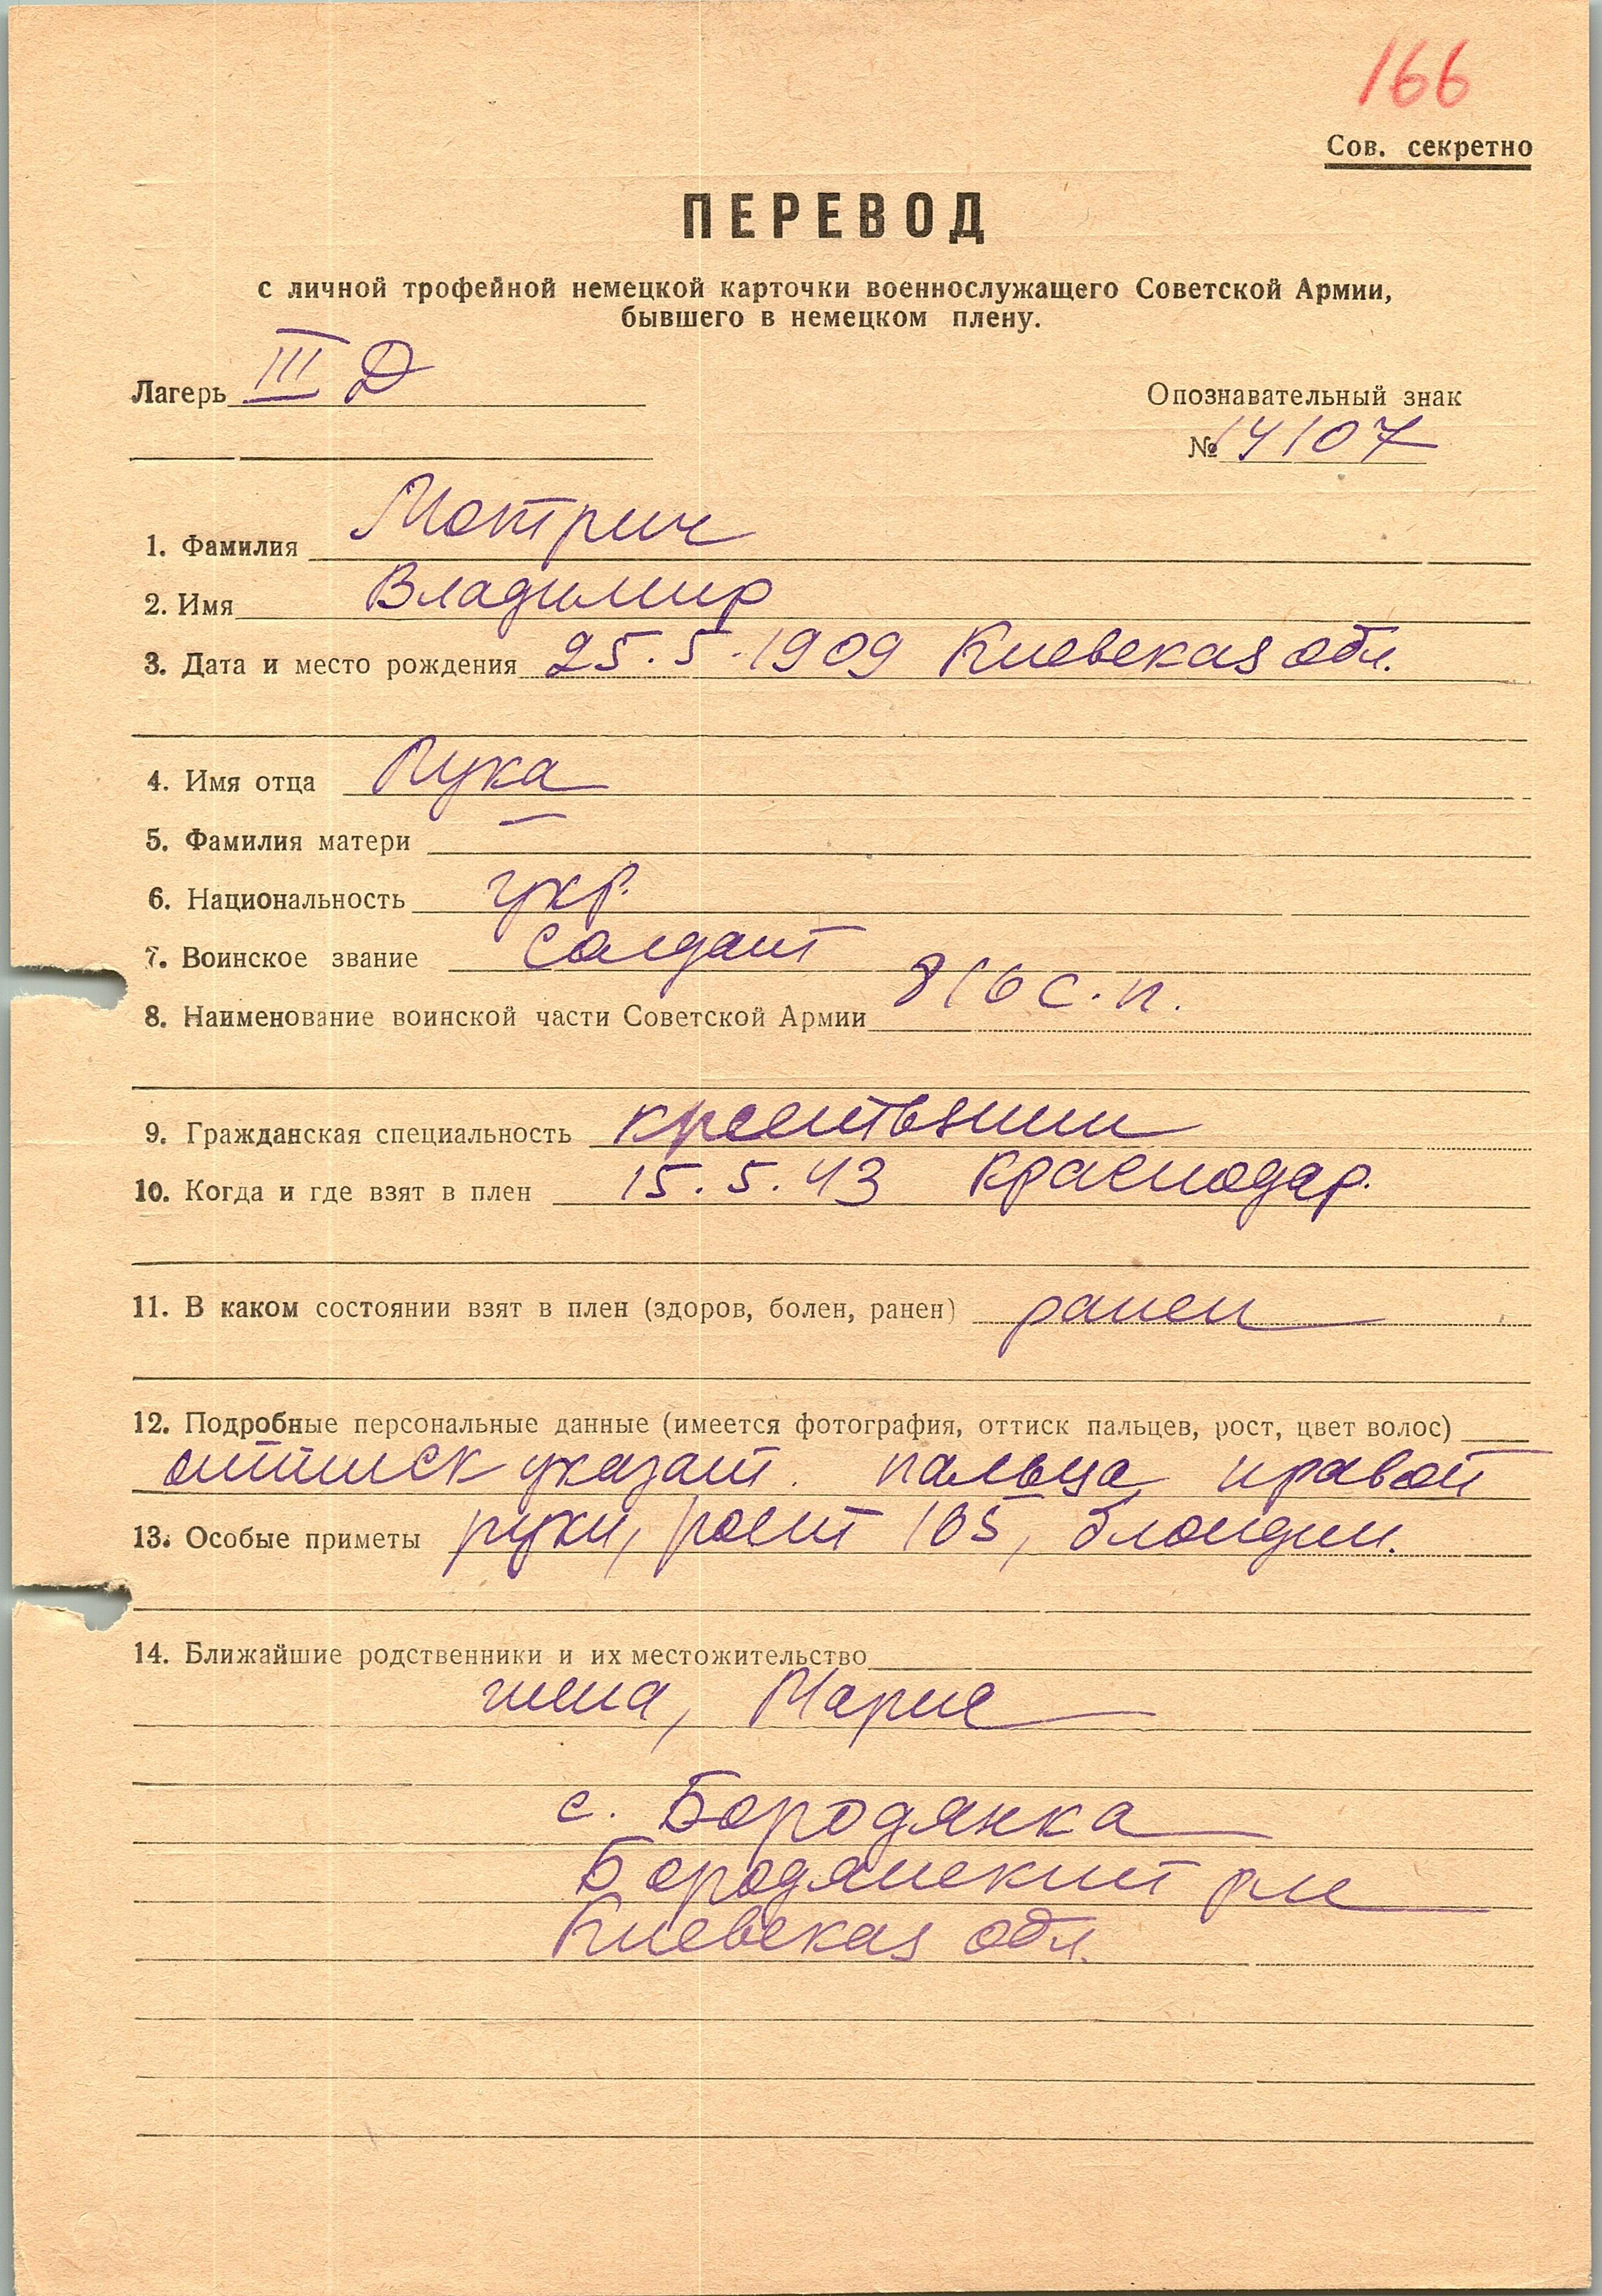 166
Сов. секретно
ПЕРЕВОД
с личной трофейной немецкой карточки военнослужащего Советской Армии,
бывшего в немецком плену.
Лагерь III Д
Опознавательный знак
№ 14107
1. Фамилия Мотрич
2. Имя Владимир
3. Дата и место рождения 25.5.1909 Киевская обл.
4. Имя отца Лука
5. Фамилия матери —
6. Национальность укр.
7. Воинское звание солдат
8. Наименование воинской части Советской Армии 816 с.п.
9. Гражданская специальность крестьянин
10. Когда и где взят в плен 15.5.43 Краснодар.
11. В каком состоянии взят в плен (здоров, болен, ранен) ранен
12. Подробные персональные данные (имеется фотография, оттиск пальцев, рост, цвет волос)
оттиск указат. пальца правой
13. Особые приметы руки, рост 165, блондин.
14. Ближайшие родственники и их местожительство
жена, Мария
с. Бородянка
Бородянский рн
Киевская обл.